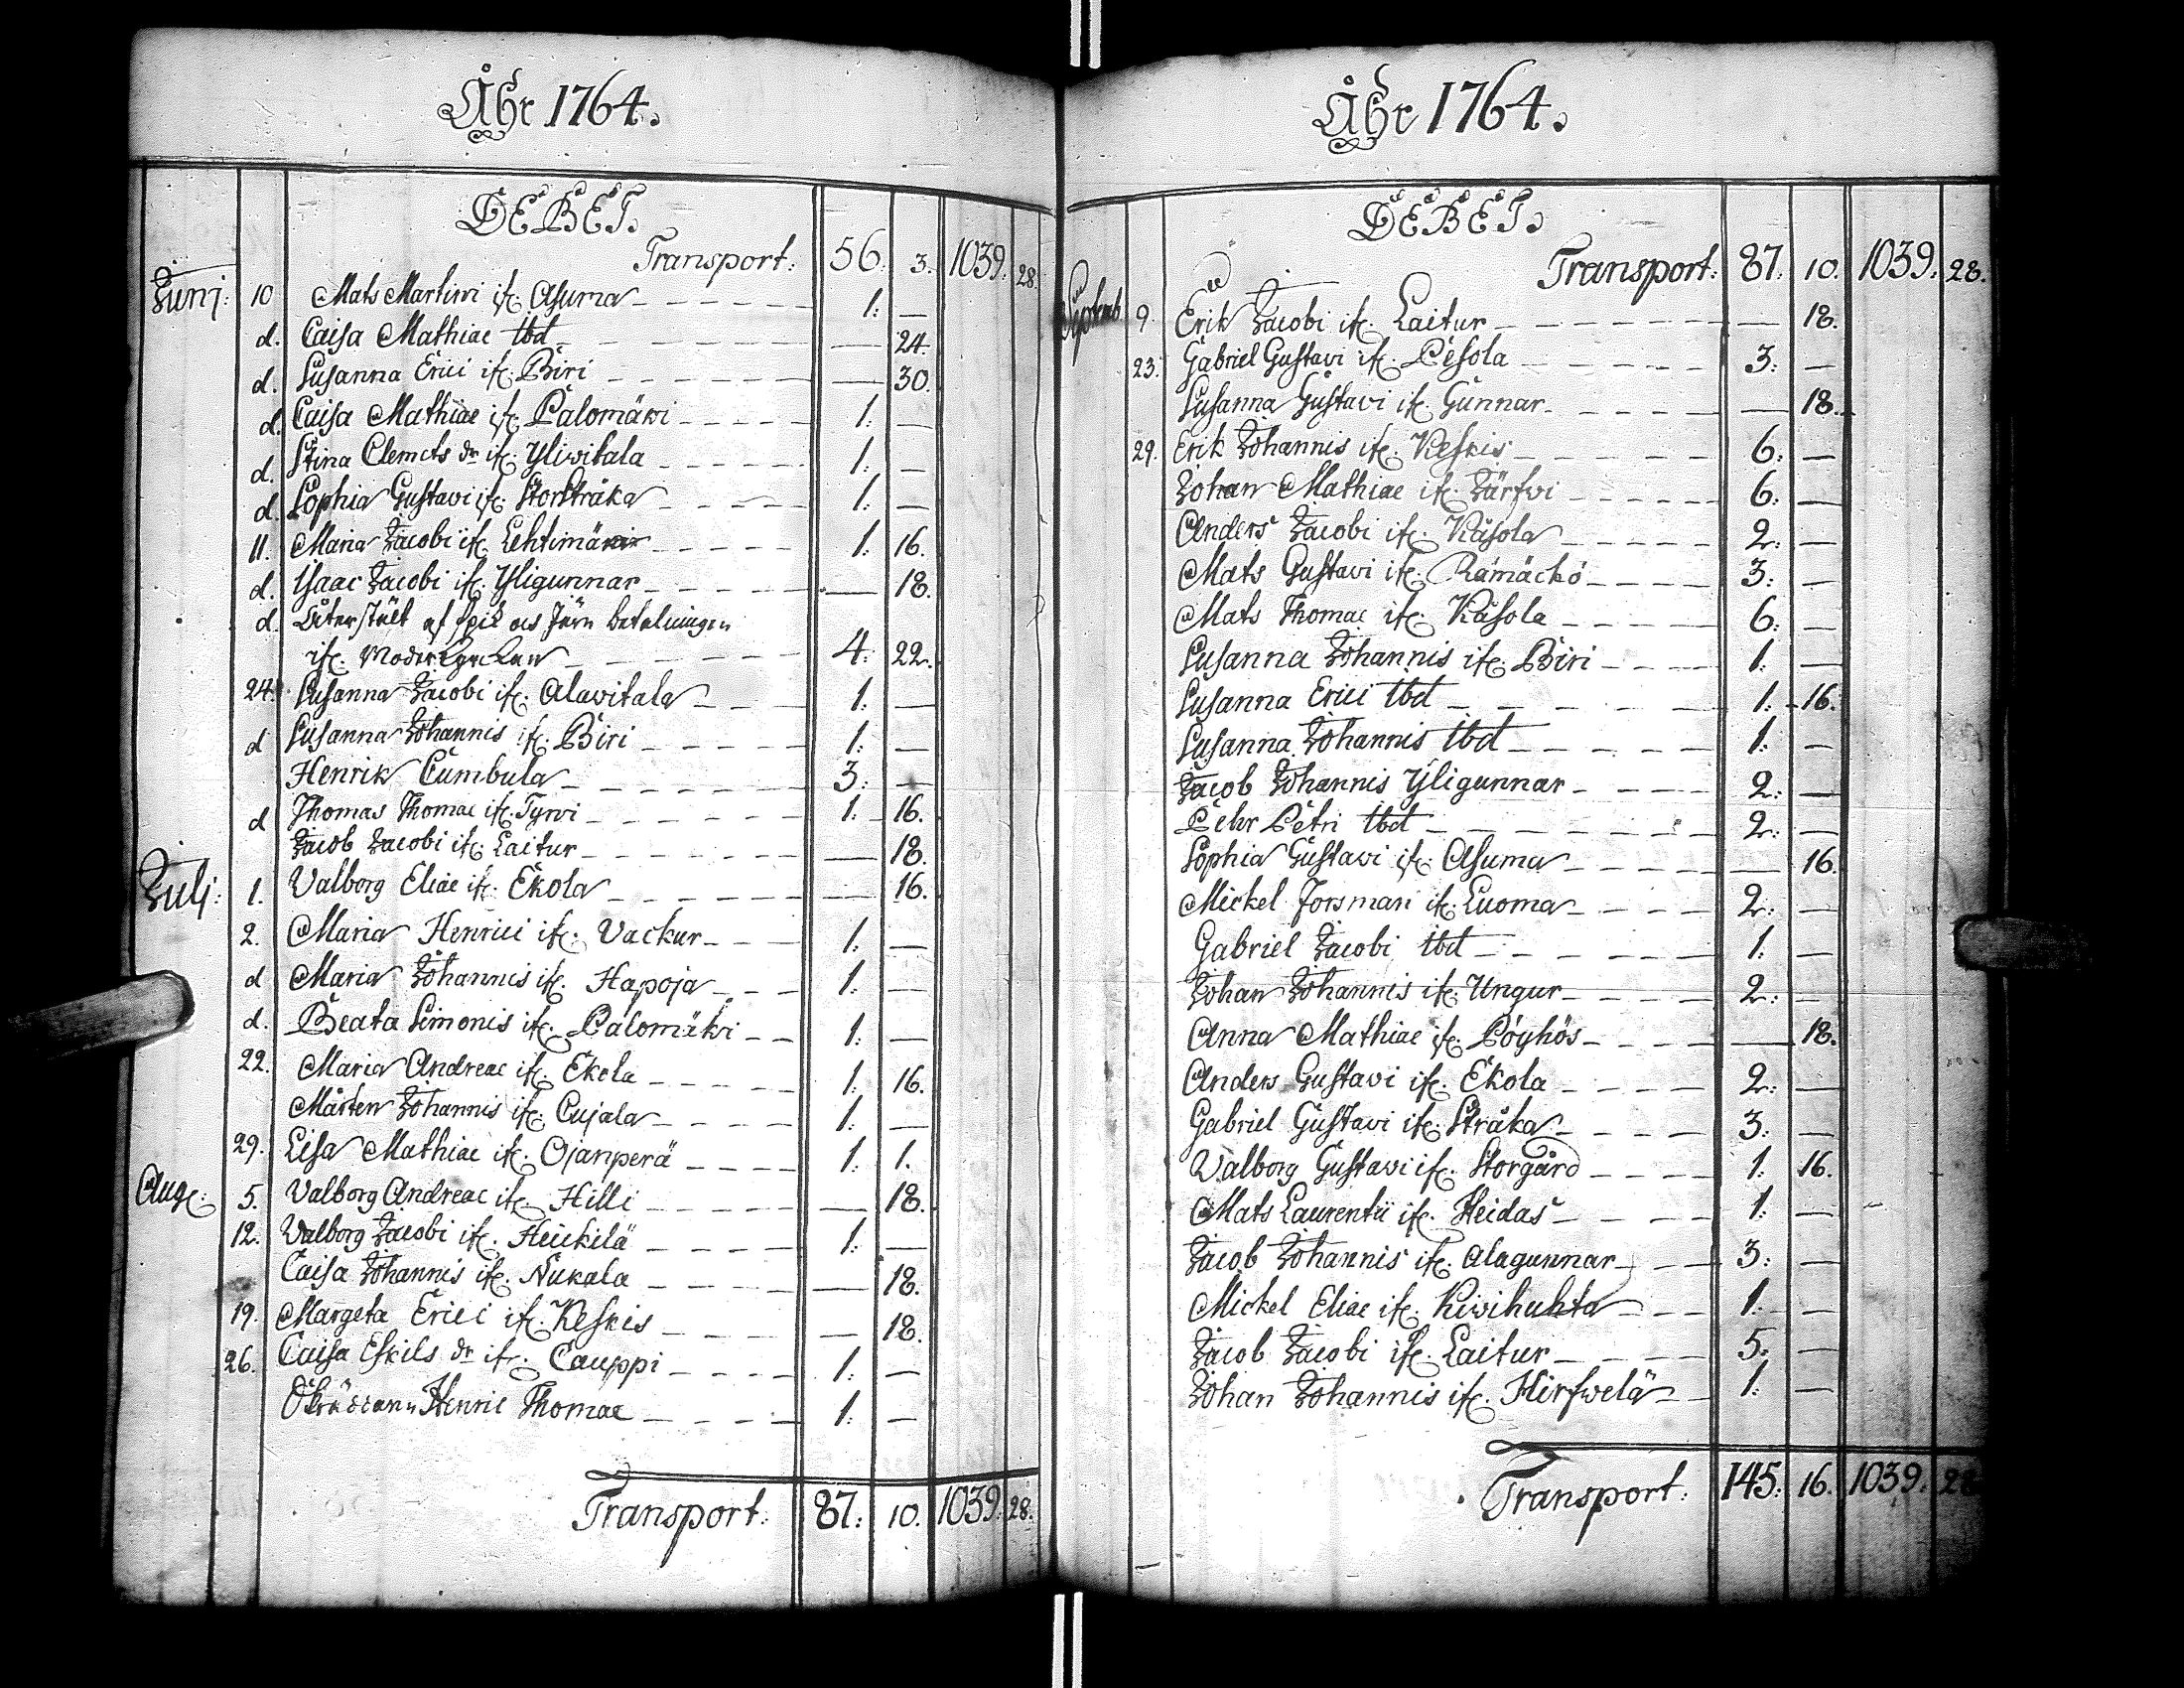 Åhr 1764.
DEBET.
Transport: 56. 3. 1039. 28.
Junj: 10 Mats Martini ifr. Asuma 1: —
d. Caisa Mathiae Ibd — 24.
d. Susanna Erici ifr. Biri — 30.
d. Caisa Mathiae ifr. Palomäki 1: —
d. Stina Clemets dr ifr. Yliwitala 1: —
d. Sophia Gustavi ifr. Storstråka 1: —
11. Maria Jacobi ifr. Lehtimäki 1: 16.
d. Ysaac Jacobi ifr. Yligunnar — 18.
d. af spik och Järn betalningen
ifr. Moderkyrkan 4: 22.
24. Susanna Jacobi ifr. Alawitala 1: —
d Susanna Johannis ifr. Biri 1: —
Henrik Cumbula 3: —
d Thomas Thomae ifr. Tyrvi 1: 16.
Jacob Jacobi ifr. Laitur — 18.
Julj: 1. Valborg Eliae ifr. Ekola — 16.
2. Maria Henrici ifr. Vackur 1: —
d Maria Johannis ifr. Hapoja 1: —
d. Beata Simonis ifr. Palomäki 1: —
22. Maria Andreae ifr. Ekola 1: 16.
Mårten Johannis ifr. Cujala 1: —
29. Lisa Mathiae ifr. Ojanperä 1: 1.
Aug: 5. Valborg Andreae ifr. Hilli — 18.
12. Valborg Jacobi ifr. Heickilä 1: —
Caisa Johannis ifr. Nukala — 18.
19. Margeta Erici ifr. Keskis — 18.
26. Caisa Eskils dr ifr. Cauppi 1: —
Henric Thomae 1: —
Transport: 87: 10. 1039: 28.
Åhr 1764.
DEBET.
Transport: 87: 10. 1039. 28.
Septemb 9. Erik Jacobi ifr. Laitur — 18.
23. Gabriel Gustavi ifr. Pesola 3: —
Susanna Gustavi ifr. Gunnar — 18.
29. Erik Johannis ifr. Keskis 6: —
Johan Mathiae ifr. Järfwi 6: —
Anders Jacobi ifr. Kåsola 2: —
Mats Gustavi ifr. Rämäckö 3: —
Mats Thomae ifr. Kåsola 6: —
Susanna Johannis ifr. Biri 1: —
Susanna Erici Ibd 1: 16.
Susanna Johannis Ibd 1: —
Jacob Johannis Yligunnar 2: —
Pehr Petri Ibd 2: —
Sophia Gustavi ifr. Asuma — 16.
Mickel Forsman ifr. Luoma 2: —
Gabriel Jacobi Ibd 1: —
Johan Johannis ifr. Ungur 2: —
Anna Mathiae ifr. Pöyhös — 18.
Anders Gustavi ifr. Ekola 2: —
Gabriel Gustavi ifr. Stråka 3: —
Valborg Gustavi ifr. Storgård 1: 16.
Mats Laurentii ifr. Heidas 1: —
Jacob Johannis ifr. Alagunnar 3: —
Mickel Eliae ifr. Kiwihuhta 1: —
Jacob Jacobi ifr. Laitur 5: —
Johan Johannis ifr. Hirfwelä 1: —
Transport: 145: 16. 1039. 28